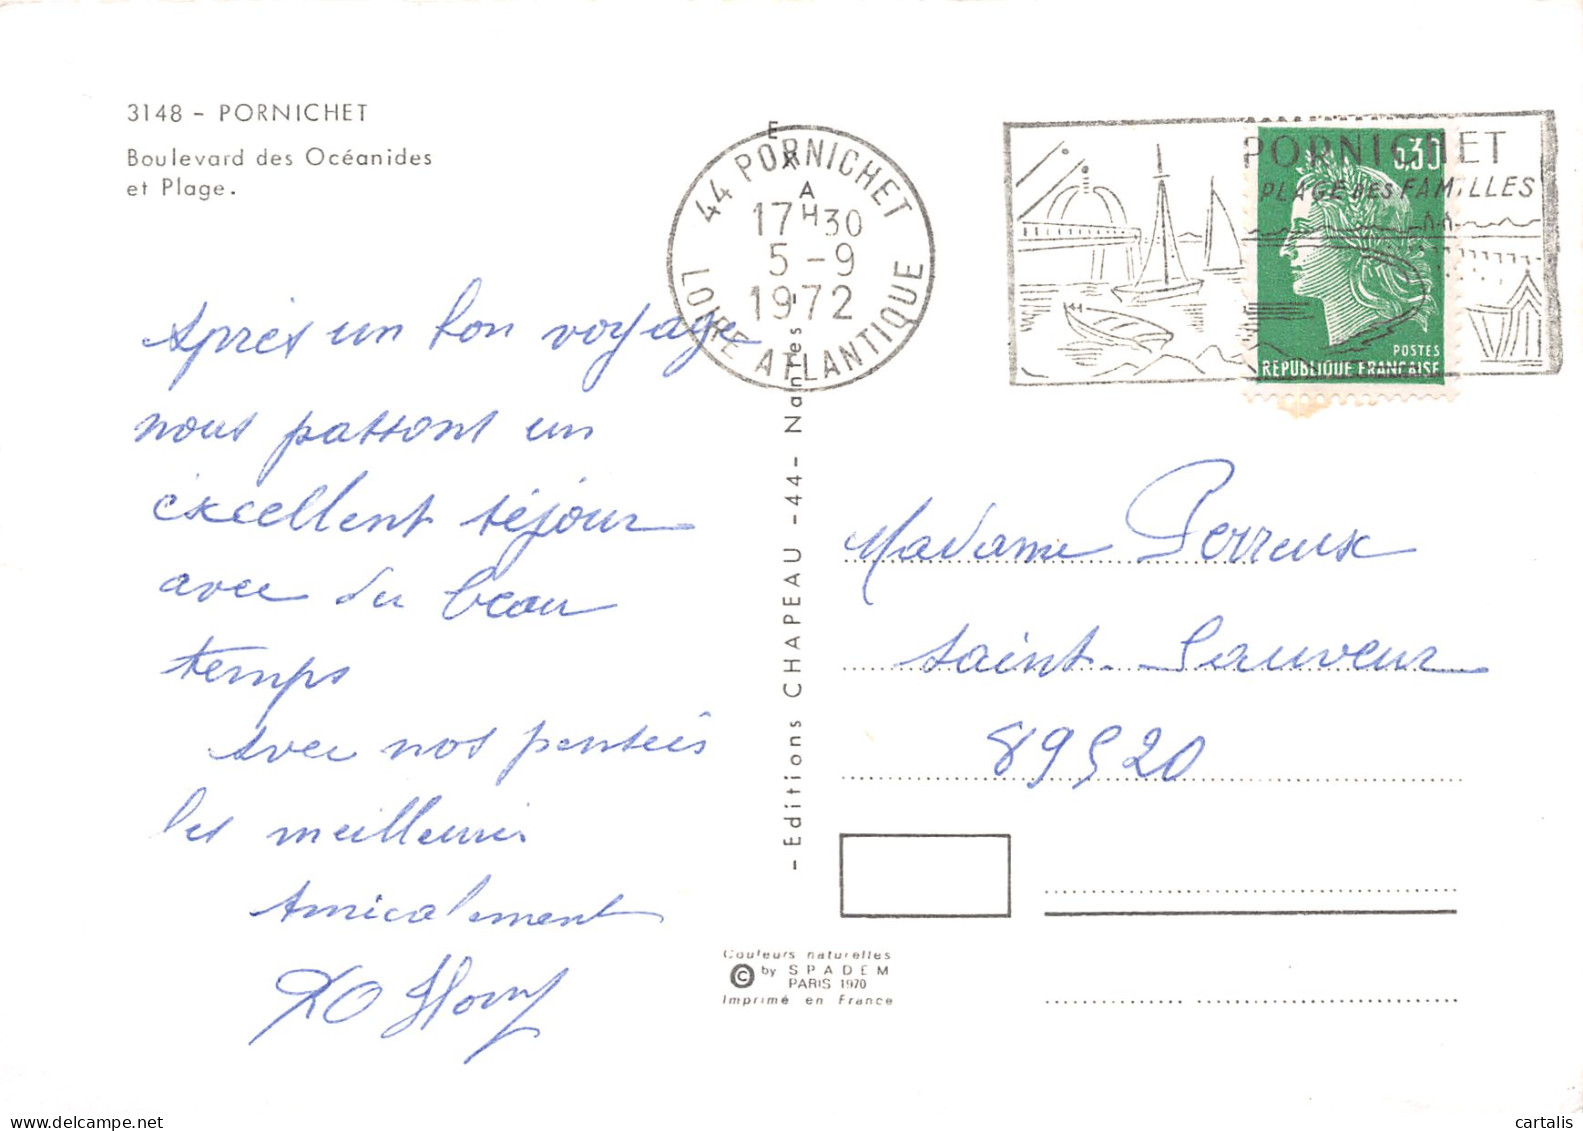 3148 - PORNICHET
Boulevard des Océanides
et Plage.
Après un bon voyage
nous passons un
excellent séjour
avec du beau
temps
Avec nos pensées
les meilleures
Amicalement
44 PORNICHET
17H30
5 - 9
1972
LOIRE ATLANTIQUE
PORNICHET
PLAGE DES FAMILLES
0,30
POSTES
REPUBLIQUE FRANÇAISE
EXA
- Editions CHAPEAU - 44 - Nantes -
Madame Perreux
Saint-Sauveur
89520
Couleurs naturelles
© by SPADEM
PARIS 1970
Imprimé en France
delcampe.net
cartalis